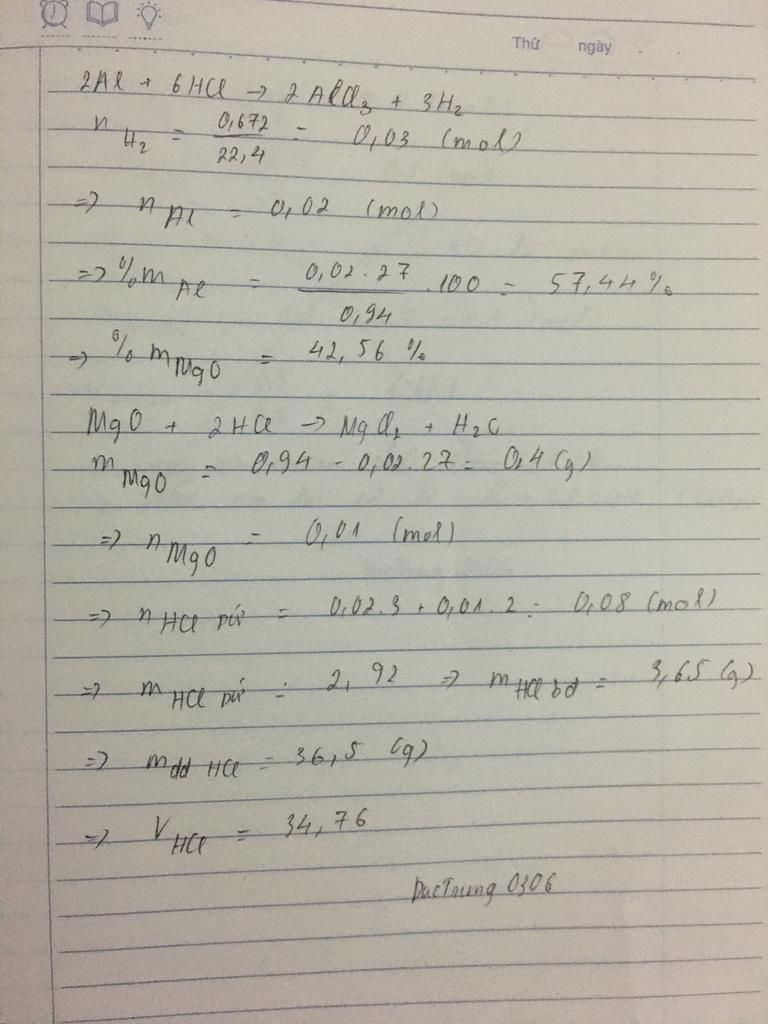 Thứ ngày
2Al + 6HCl → 2AlCl₃ + 3H₂
n H₂ = 0,672 / 22,4 = 0,03 (mol)
=> n Al = 0,02 (mol)
=> % m Al = 0,02.27 / 0,94 .100 = 57,44 %
=> % m MgO = 42,56 %
MgO + 2HCl → MgCl₂ + H₂O
m MgO = 0,94 - 0,02.27 = 0,4 (g)
=> n MgO = 0,01 (mol)
=> n HCl pứ = 0,02.3 + 0,01.2 = 0,08 (mol)
=> m HCl pứ = 2,92 => m HCl bđ = 3,65 (g)
=> m dd HCl = 36,5 (g)
=> V HCl = 34,76
DucTrung 0306